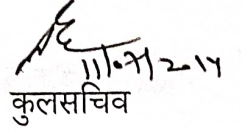 11/07/2014
कुलसचिव